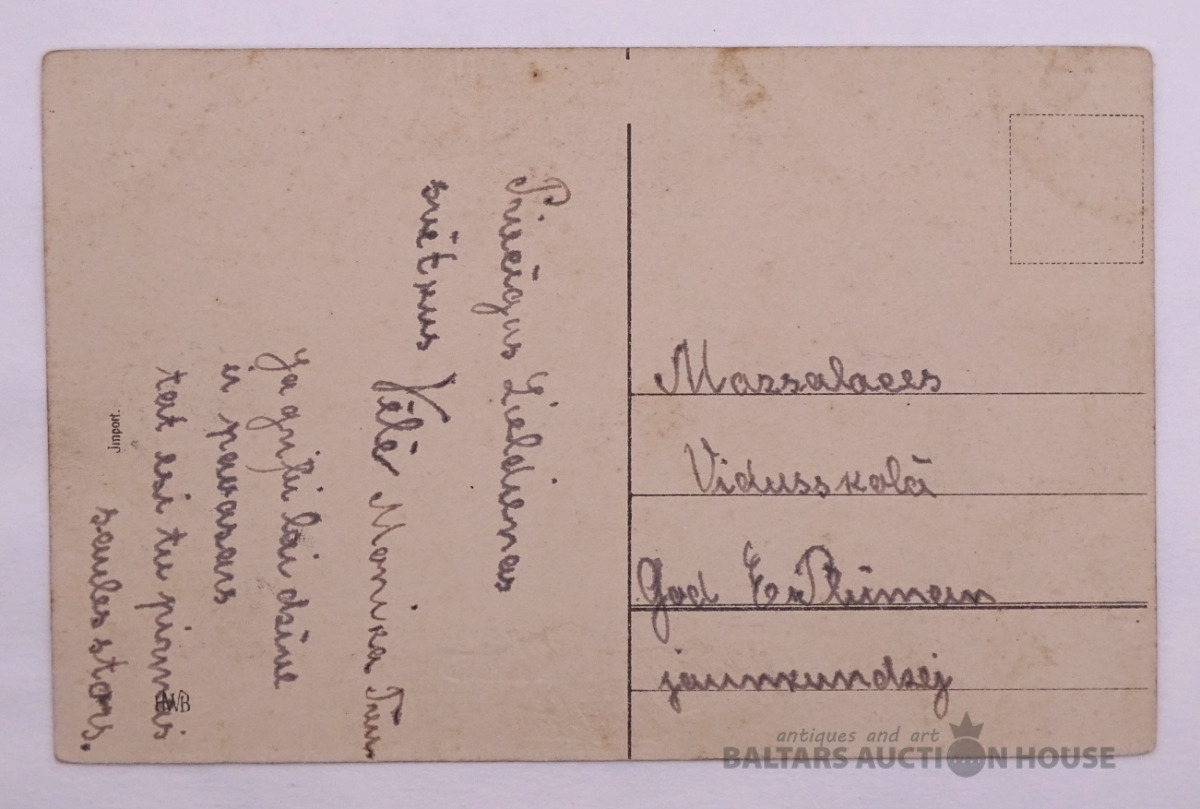 Priecīgus Lieldienas
svētkus
Vēlē Monika
Ja gribi lai dzīve
ir pavasars
tad esi tu pirmais
saules stars.
Jmport.
HWB
Mazsalaces
Vidusskolā
God E. Plūman
jaunkundzej
antiques and art
BALTARS AUCTION HOUSE